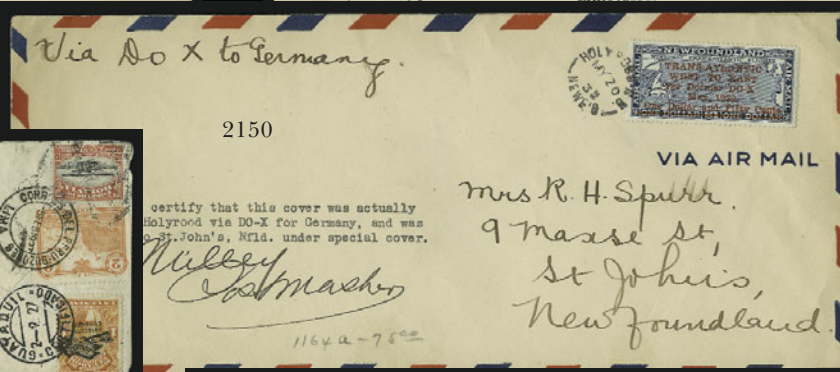 Via Do X to Germany.
HOLYROOD
MY 20
32
NEWF'D
NEWFOUNDLAND
AIR MAIL
TRANS-ATLANTIC
WEST TO EAST
Per Dornier DO-X
May, 1932.
One Dollar and Fifty Cents
2150
VIA AIR MAIL
certify that this cover was actually
Holyrood via DO-X for Germany, and was
o St.John's, Nfld. under special cover.
Postmaster
1164a - 75.00
Mrs R. H. Spurr.
9 Maxse St,
St John's,
Newfoundland.
LIMA
CORREOS DEL PERU
2
GUAYAQUIL
2-9. 27